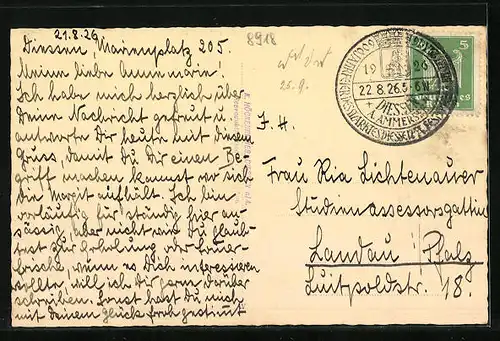 21.8.26
Diessen, Marienplatz 205.
Meine liebe Annemarie!
Ich habe mich herzlich über
Deine Nachricht gefreut u.
antworte Dir heute mit diesem
Gruss, damit Du Dir einen Be-
griff machen kannst wo sich
die Margit aufhält. Ich bin
vorläufig für ständig hier an-
sässig, aber nicht wie Du glaub-
test zur Erholung oder
wenn es Dich interessieren
sollte, will ich Dir gern darüber
schreiben. Sonst hast Du mich
mit Deinem Glück froh gestimmt
8918
25.9.
I. H.
Frau Ria Lichtenauer
Studienassessorsgattin
Landau / Pfalz
Luitpoldstr. 18.
19 26
22.8.26.5-6N
DIESSEN
AMMERSEE
5